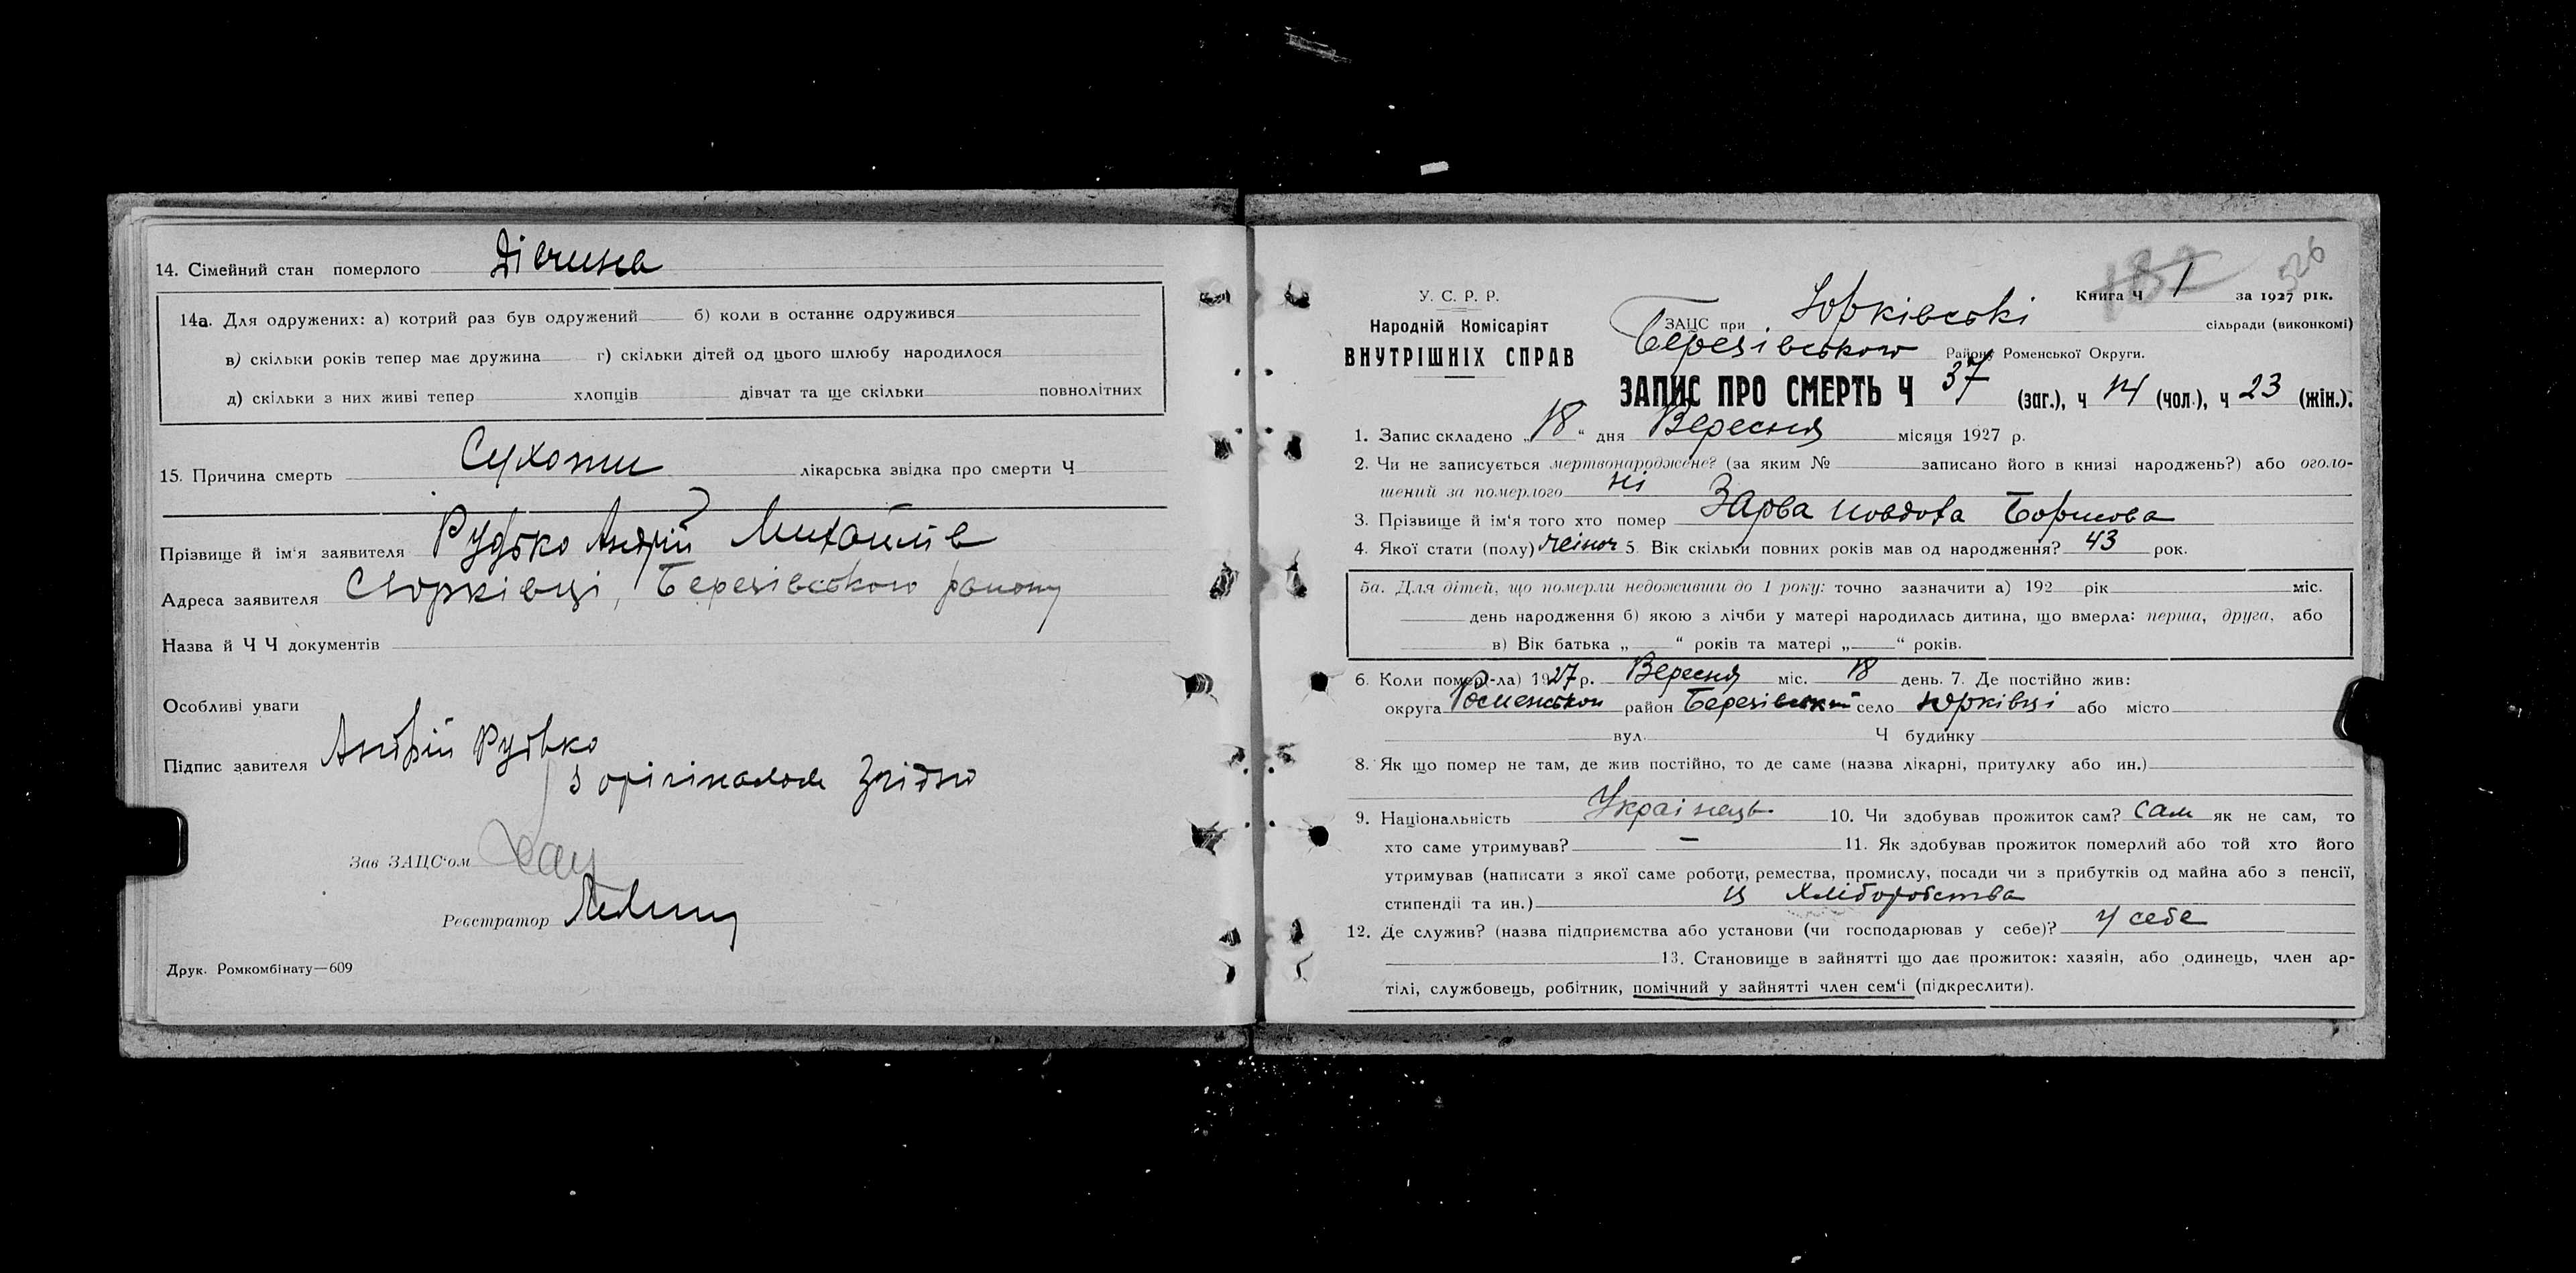 14. Сімейний стан померлого Дівчина
14а. Для одружених: а) котрий раз був одружений б) коли в останнє одружився
в) скільки років тепер має дружина г) скільки дітей од цього шлюбу народилося
д) скільки з них живі тепер хлопців дівчат та ще скільки повнолітних
15. Причина смерть Сухоти лікарська звідка про смерти Ч
Прізвище й ім'я заявителя Рудько Андрій Михайлів
Адреса заявителя С Юрківці, Березівського району
Назва й Ч Ч документів
Особливі уваги
Підпис завителя Андрій Рудько
З орігіналом Згідно
Зав ЗАЦС'ом
Реєстратор
Друк. Ромкомбінату—609
326
У. С. Р. Р.
Народній Комісаріят
ВНУТРІШНІХ СПРАВ
Книга Ч 1 за 1927 рік.
ЗАЦС при Юрківські сільради (виконкомі)
Березівського Району Роменської Округи.
ЗАПИС ПРО СМЕРТЬ Ч 37 (заг.), ч 14 (чол.), ч 23 (жін.).
1. Запис складено „18" дня Вересня місяця 1927 р.
2. Чи не записується мертвонароджене? (за яким № записано його в книзі народжень?) або оголо-
шений за померлого ні
3. Прізвище й ім'я того хто помер Зарва Борисова
4. Якої стати (полу) жіноч 5. Вік скільки повних років мав од народження? 43 рок.
5а. Для дітей, що померли недоживши до 1 року: точно зазначити а) 192 рік міс.
день народження б) якою з лічби у матері народилась дитина, що вмерла: перша, друга, або
в) Вік батька „ " років та матері „ " років.
6. Коли помер(-ла) 1927 р. Вересня міс. 18 день. 7. Де постійно жив:
округа Роменськой район Березівський село Юрківці або місто
вул. Ч будинку
8. Як що помер не там, де жив постійно, то де саме (назва лікарні, притулку або ин.)
9. Національність Українець 10. Чи здобував прожиток сам? сам як не сам, то
хто саме утримував? — 11. Як здобував прожиток померлий або той хто його
утримував (написати з якої саме роботи, ремества, промислу, посади чи з прибутків од майна або з пенсії,
стипендії та ин.) із хліборобства
12. Де служив? (назва підприємства або установи (чи господарював у себе)? у себе
13. Становище в зайнятті що дає прожиток: хазяін, або одинець, член ар-
тілі, службовець, робітник, помічний у зайнятті член сем'ї (підкреслити).